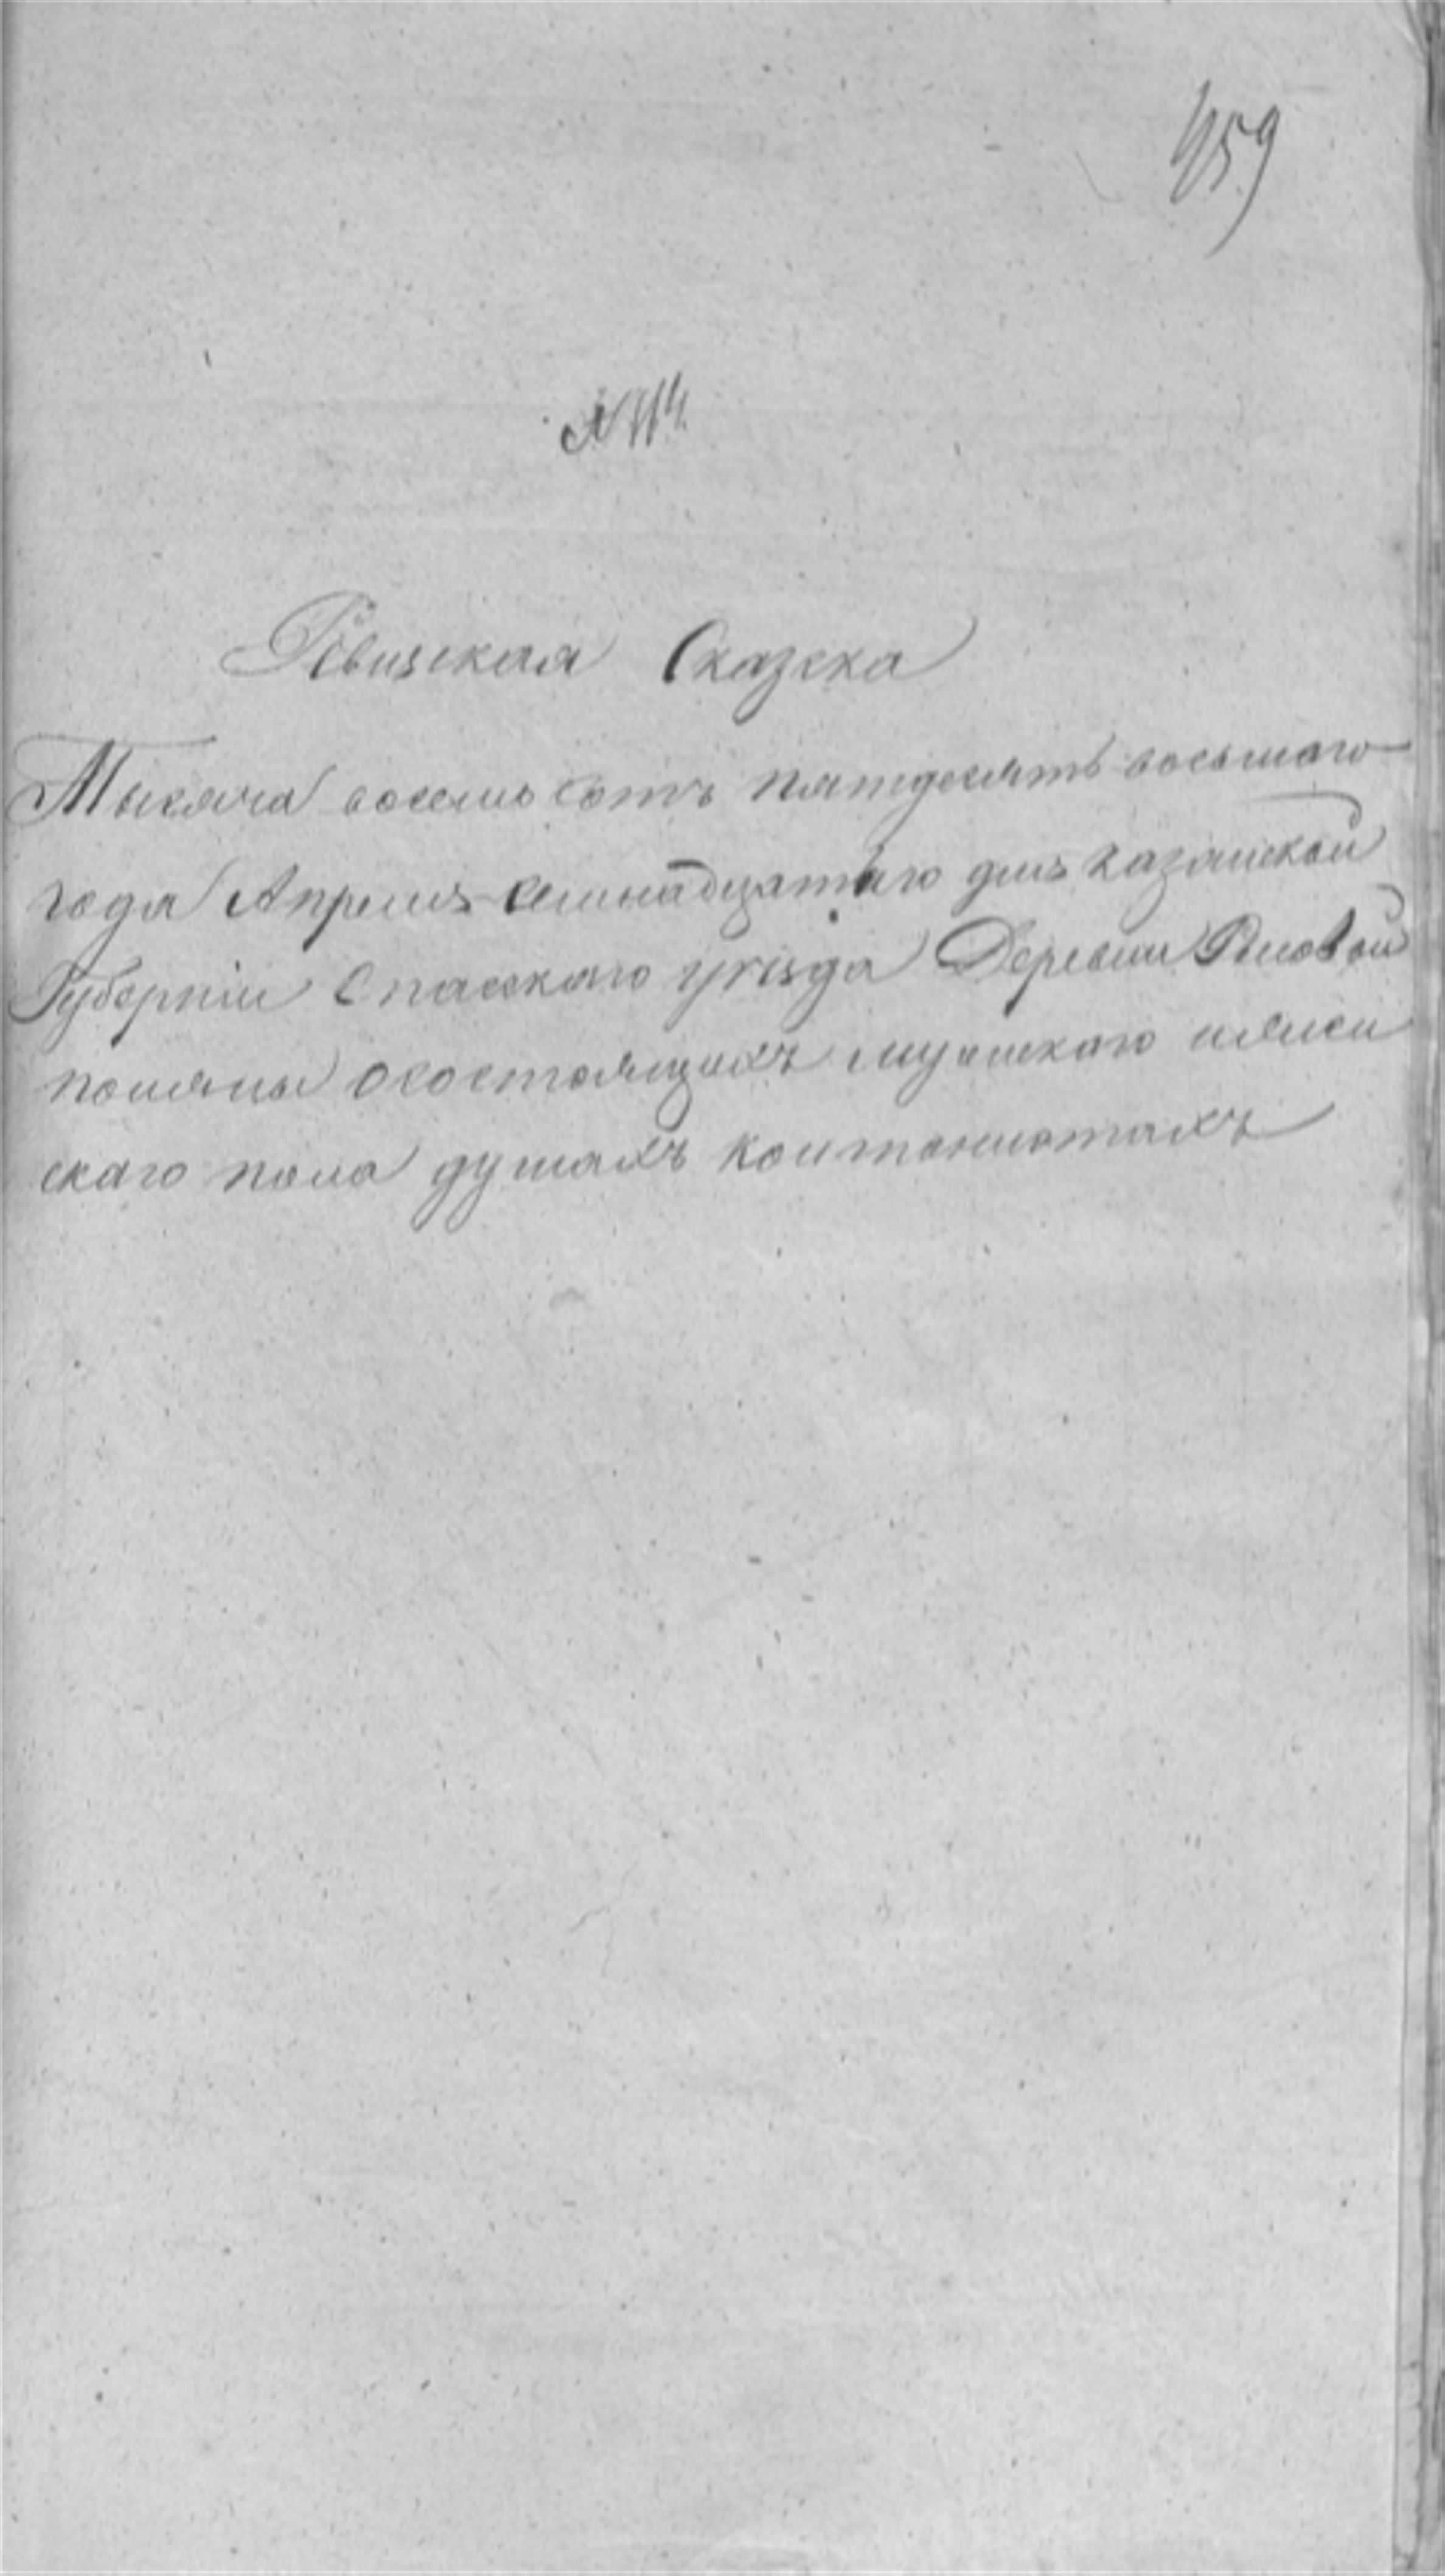 459
№ 114.
Ревизская Сказска
Тысяча восемь сотъ пятдесятъ восьмаго
года Апреля семнадцатаго дня Казанской
Губерніи Спасскаго уезда Деревни
поляны осостоящихъ мужскаго ижен
скаго пола душахъ контонистахъ